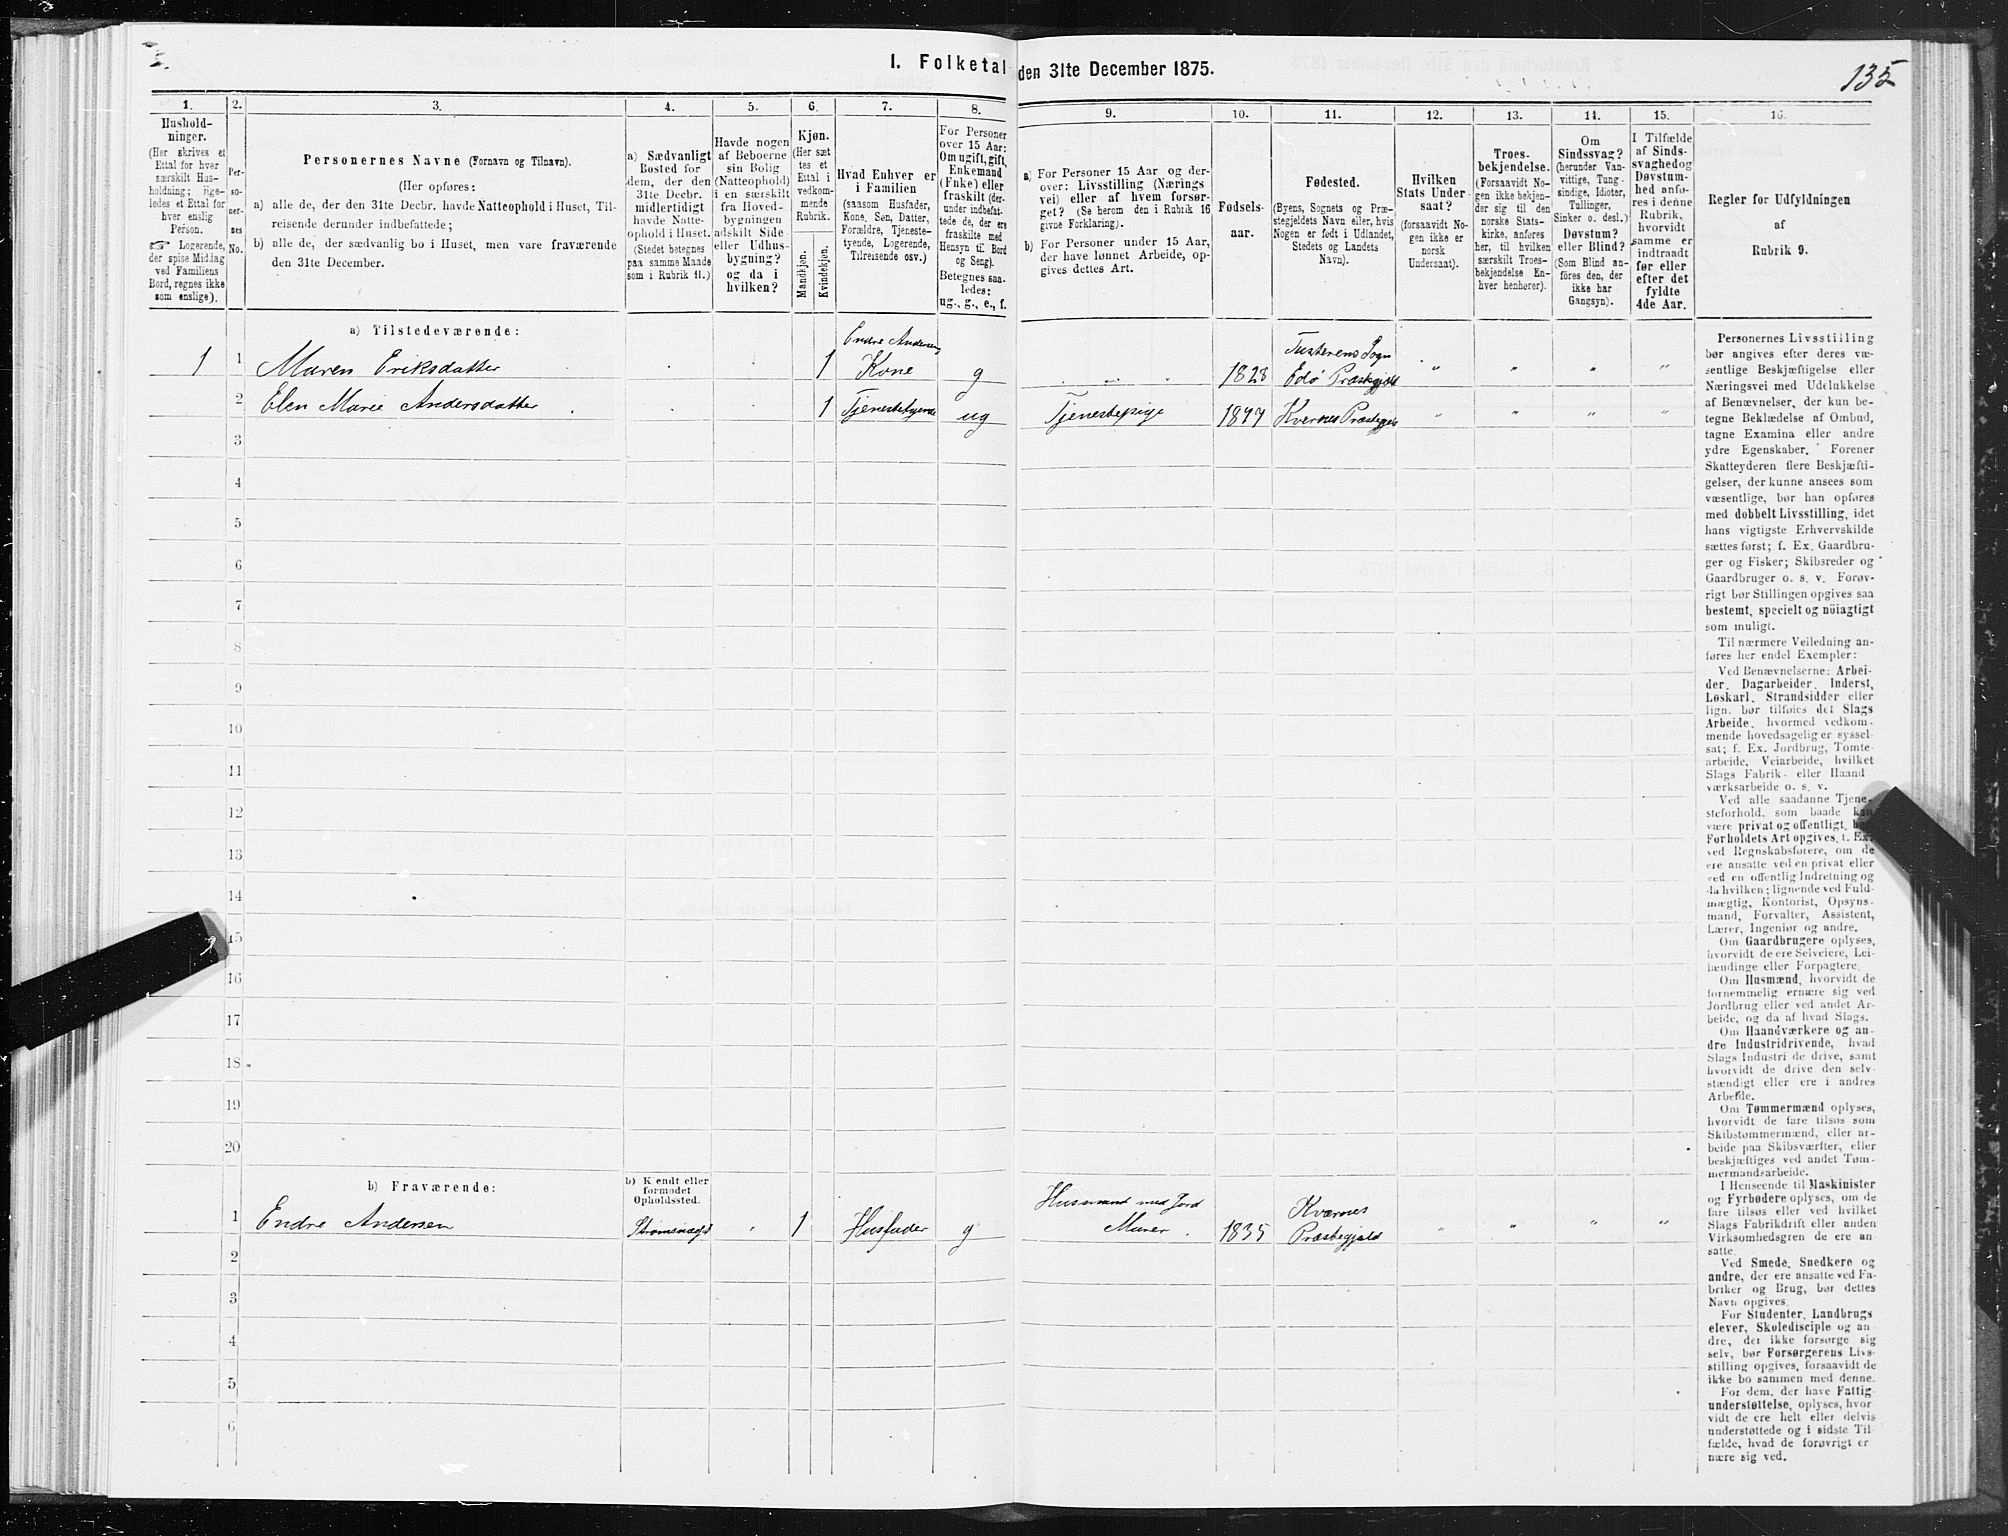 135
I. Folketal den 31te December 1875.
1. 2. 3. 4. 5. 6. 7. 8. 9. 10. 11. 12. 13. 14. 15. 16.
Hushold-
ninger.
(Her skrives et
Ettal for hver
særskilt Hus-
holdning; lige-
ledes et Ettal for
hver enslig
Person.
☞ Logerende,
der spise Middag
ved Familiens
Bord, regnes ikke
som enslige).
Per-
so-
ner-
nes
No.
Personernes Navne (Fornavn og Tilnavn).
(Her opføres:
a) alle de, der den 31te Decbr. havde Natteophold i Huset, Til-
reisende derunder indbefattede;
b) alle de, der sædvanlig bo i Huset, men vare fraværende
den 31te December.
a) Sædvanligt
Bosted for
dem, der den
31te Decbr.
midlertidigt
havde Natte-
ophold i Huset.
(Stedet betegnes
paa samme Maade
som i Rubrik 11.)
Havde nogen
af Beboerne
sin Bolig
(Natteophold)
i en særskilt
fra Hoved-
bygningen
adskilt Side-
eller Udhus-
bygning?
og da i
hvilken?
Kjøn.
(Her sæt-
tes et
Ettal i
vedkom-
mende
Rubrik.
Mandkjøn.
Kvindekjøn.
Hvad Enhver er
i Familien
(saasom Husfader,
Kone, Søn, Datter,
Forældre, Tjeneste-
tyende, Logerende,
Tilreisende osv.)
For Personer
over 15 Aar:
Om ugift, gift,
Enkemand
(Enke) eller
fraskilt (der-
under indbefat-
tede de, der ere
fraskilte med
Hensyn til Bord
og Seng).
Betegnes saa-
ledes:
ug., g., e., f.
a) For Personer 15 Aar og der-
over: Livsstilling (Nærings
vei) eller af hvem forsør-
get? (Se herom den i Rubrik 16
givne Forklaring).
b) For Personer under 15 Aar,
der have lønnet Arbeide, op-
gives dettes Art.
Fødsels-
aar.
Fødested.
(Byens, Sognets og Præ-
stegjeldets Navn eller, hvis
Nogen er født i Udlandet,
Stedets og Landets
Navn).
Hvilken
Stats Under-
saat?
(forsaavidt No-
gen ikke er
norsk
Undersaat).
Troes-
bekjendelse.
(Forsaavidt No-
gen ikke bekjen-
der sig til den
norske Stats-
kirke, anføres
her, til hvilken
særskilt Troes-
bekjendelse En-
hver henhører).
Om
Sindssvag?
(herunder Van-
vittige, Tung-
sindige, Idioter,
Tullinger,
Sinker o. desl.)
Døvstum?
eller Blind?
(Som Blind an-
føres den, der
ikke har
Gangsyn).
I Tilfælde
af Sinds-
svaghed og
Døvstum-
hed anfø-
res i denne
Rubrik,
hvorvidt
samme er
indtraadt
før eller
efter det
fyldte
4de Aar.
Regler for Udfyldningen
af
Rubrik 9.
a) Tilstedeværende:
1 1 Maren Eriksdatter 1 Endre Andersens Kone g 1828 Tusterens Sogn Edø Præstegjeld " " " "
2 Elen Marie Andersdatter 1 Tjenestetyende ug Tjenestepige Kvernes Præstegjeld " " " "
3
4
5
6
7
8
9
10
11
12
13
14
15
16
17
18
19
20
b) Fraværende:
b) Kjendt eller
formodet
Opholdssted.
1 Endre Andersen " 1 Husfader g Husmand med Jord Murer 1835 Kvernes Præstegjeld " " " "
2
3
4
5
6
Personernes Livsstilling
bør angives efter deres væ-
sentlige Beskjæftigelse eller
Næringsvei med Udelukkelse
af Benævnelser, der kun be-
tegne Beklædelse af Ombud,
tagne Examina eller andre
ydre Egenskaber. Forener
Skatteyderen flere Beskjæfti-
gelser, der kunne ansees som
væsentlige, bør han opføres
med dobbelt Livsstilling, idet
hans vigtigste Erhvervskilde
sættes først; f. Ex. Gaardbru-
ger og Fisker; Skibsreder og
Gaardbruger o. s. v. Forøv-
rigt bør Stillingen opgives saa
bestemt, specielt og nöiagtigt
som muligt.
Til nærmere Veiledning an-
føres her endel Exempler:
Ved Benævnelserne: Arbei-
der, Dagarbeider, Inderst,
Løskarl, Strandsidder eller
lign. bør tilføies det Slags
Arbeide, hvormed vedkom-
mende hovedsagelig er syssel-
sat; f. Ex. Jordbrug, Tomte-
arbeide, Veiarbeide, hvilket
Slags Fabrik- eller Haand-
værksarbeide o. s. v.
Ved alle saadanne Tjene-
steforhold, som baade kan
være privat og offentligt, bør
Forholdets Art opgives, f. Ex.
ved Regnskabsførere, om de
ere ansatte ved en privat eller
ved en offentlig Indretning og
da hvilken; lignende ved Fuld-
mægtig, Kontorist, Opsyns-
mand, Forvalter, Assistent,
Lærer, Ingeniør og andre.
Om Gaardbrugere oplyses,
hvorvidt de ere Selveiere, Lei-
lændinge eller Forpagtere.
Om Husmænd, hvorvidt de
fornemmelig ernære sig ved
Jordbrug eller ved andet Ar-
beide, og da af hvad Slags.
Om Haandværkere og an-
dre Industridrivende, hvad
Slags Industri de drive, samt
hvorvidt de drive den selv-
stændigt eller ere i andres
Arbeide.
Om Tømmermænd oplyses,
hvorvidt de fare tilsøs som
Skibstømmermænd, eller ar-
beide paa Skibsværfter, eller
beskjæftiges ved andet Tøm-
mermandsarbeide.
I Henseende til Maskinister
og Fyrbødere oplyses, om de
fare tilsøs eller ved hvilket
Slags Fabrikdrift eller anden
Virksomhedsgren de ere an-
satte.
Ved Smede, Snedkere og
andre, der ere ansatte ved Fa-
briker og Brug, bør dettes
Navn opgives.
For Studenter, Landbrugs
elever, Skoledisciple og an-
dre, der ikke forsørge sig
selv, bør Forsørgerens Livs-
stilling opgives, forsaavidt de
ikke bo sammen med denne.
For dem, der have Fattig-
understøttelse, oplyses, hvor-
vidt de ere helt eller delvis
understøttede og i sidste Til-
fælde, hvad de forøvrigt er
nære sig ved.